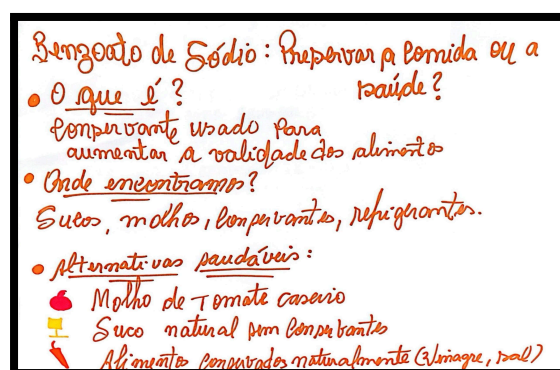 Benzoato de Sódio: Preservar a comida ou a
saúde?
O que é?
Conservante usado para
aumentar a validade dos alimentos
Onde encontramos?
Sucos, molhos, conservantes, refrigerantes.
Alternativas saudáveis:
Molho de Tomate caseiro
Suco natural sem conservantes
Alimentos conservados naturalmente (Vinagre, sal)